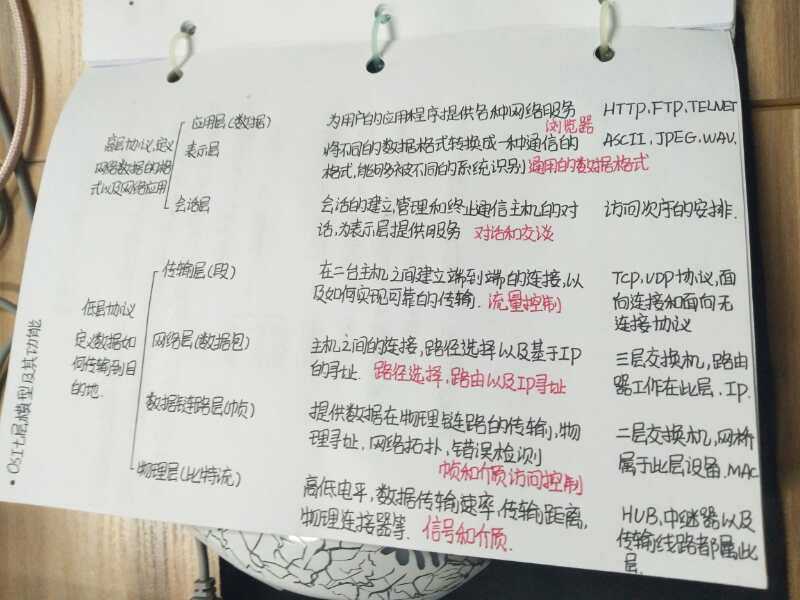 • OSI七层模型及其功能
高层协议,定义
网络数据的格
式以及网络应用
应用层(数据)
为用户的应用程序提供各种网络服务
浏览器
HTTP、FTP、TELNET
表示层
将不同的数据格式转换成一种通信的
格式,能够被不同的系统识别 通用的数据格式
ASCII、JPEG、WAV、
会话层
会话的建立,管理和终止通信主机的对
话,为表示层提供服务 对话和交谈
访问次序的安排.
低层协议
定义数据如
何传输到目
的地.
传输层(段)
在二台主机之间建立端到端的连接,以
及如何实现可靠的传输. 流量控制
TCP、UDP协议,面
向连接和面向无
连接协议
网络层(数据包)
主机之间的连接,路径选择以及基于IP
的寻址. 路径选择,路由以及IP寻址
三层交换机,路由
器工作在此层.IP.
数据链路层(帧)
提供数据在物理链路的传输,物
理寻址,网络拓扑,错误检测
帧和介质访问控制
二层交换机,网桥
属于此层设备.MAC
物理层(比特流)
高低电平,数据传输速率,传输距离,
物理连接器等. 信号和介质.
HUB,中继器以及
传输线路都属此
层.